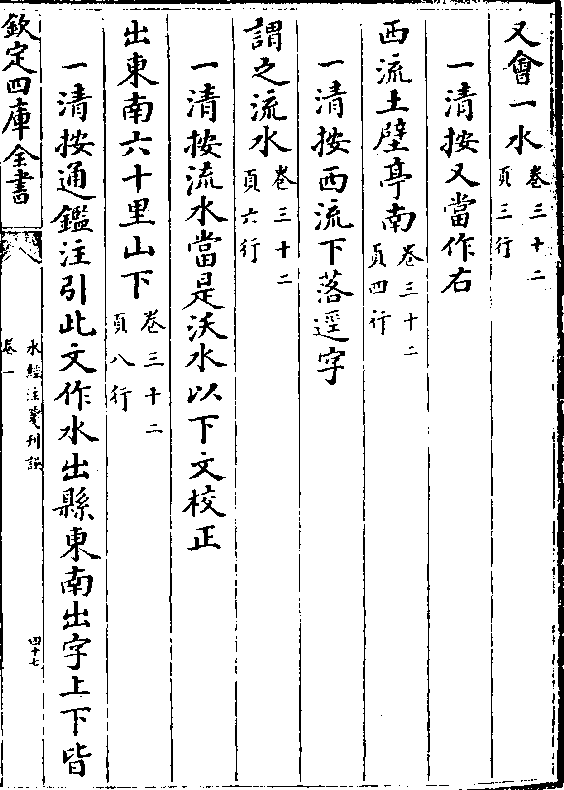 又會一水卷三十二頁三行
一清按又當作右
西流土壁亭南卷三十二頁四行
一清按西流下落逕字
謂之流水卷三十二頁六行
一清按流水當是沃水以下文校正
出東南六十里山下卷三十二頁八行
一清按通鑑注引此文作水出縣東南出字上下皆
欽定四庫全書
水經注箋刊誤
卷一
四十七